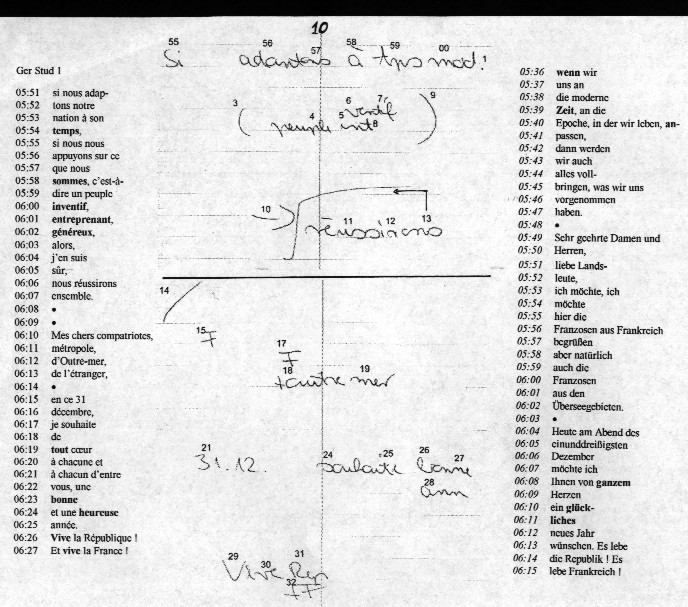 10
Ger Stud 1
05:51 si nous adap-
05:52 tons notre
05:53 nation à son
05:54 temps,
05:55 si nous nous
05:56 appuyons sur ce
05:57 que nous
05:58 sommes, c'est-à-
05:59 dire un peuple
06:00 inventif,
06:01 entreprenant,
06:02 généreux,
06:03 alors,
06:04 j'en suis
06:05 sûr,
06:06 nous réussirons
06:07 ensemble.
06:08 •
06:09 •
06:10 Mes chers compatriotes,
06:11 métropole,
06:12 d'Outre-mer,
06:13 de l'étranger,
06:14 •
06:15 en ce 31
06:16 décembre,
06:17 je souhaite
06:18 de
06:19 tout cœur
06:20 à chacune et
06:21 à chacun d'entre
06:22 vous, une
06:23 bonne
06:24 et une heureuse
06:25 année.
06:26 Vive la République !
06:27 Et vive la France !
55 56 57 58 59 00 1
Si à tps mod.
3 4 5 6 7 8 9
( peuple int )
10 11 12 13
réussirons
14
15
F
17
F
18 19
outre mer
21 24 25 26 27
31.12. souhaite bonne
28
ann
29 30 31
Vive Rep
32
FF
05:36 wenn wir
05:37 uns an
05:38 die moderne
05:39 Zeit, an die
05:40 Epoche, in der wir leben, an-
05:41 passen,
05:42 dann werden
05:43 wir auch
05:44 alles voll-
05:45 bringen, was wir uns
05:46 vorgenommen
05:47 haben.
05:48 •
05:49 Sehr geehrte Damen und
05:50 Herren,
05:51 liebe Lands-
05:52 leute,
05:53 ich möchte, ich
05:54 möchte
05:55 hier die
05:56 Franzosen aus Frankreich
05:57 begrüßen
05:58 aber natürlich
05:59 auch die
06:00 Franzosen
06:01 aus den
06:02 Überseegebieten.
06:03 •
06:04 Heute am Abend des
06:05 einunddreißigsten
06:06 Dezember
06:07 möchte ich
06:08 Ihnen von ganzem
06:09 Herzen
06:10 ein glück-
06:11 liches
06:12 neues Jahr
06:13 wünschen. Es lebe
06:14 die Republik ! Es
06:15 lebe Frankreich !